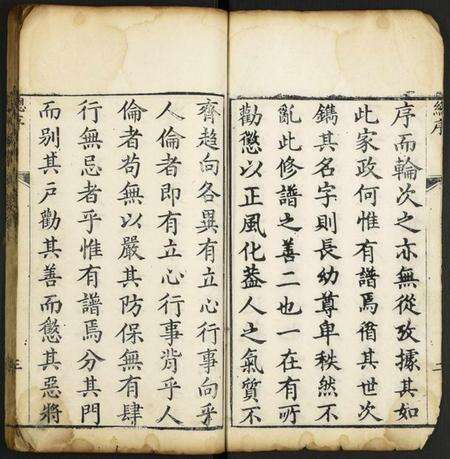 序而輪次之亦無從攷據其如
此家政何惟有譜焉循其世次
鐫其名字則長幼尊卑秩然不
亂此修譜之善二也一在有所
勸懲以正風化葢人之氣質不
齊趨向各異有立心行事向乎
人倫者即有立心行事背乎人
倫者苟無以嚴其防保無有肆
行無忌者乎惟有譜焉分其門
而别其戸勸其善而懲其惡將
總序
三